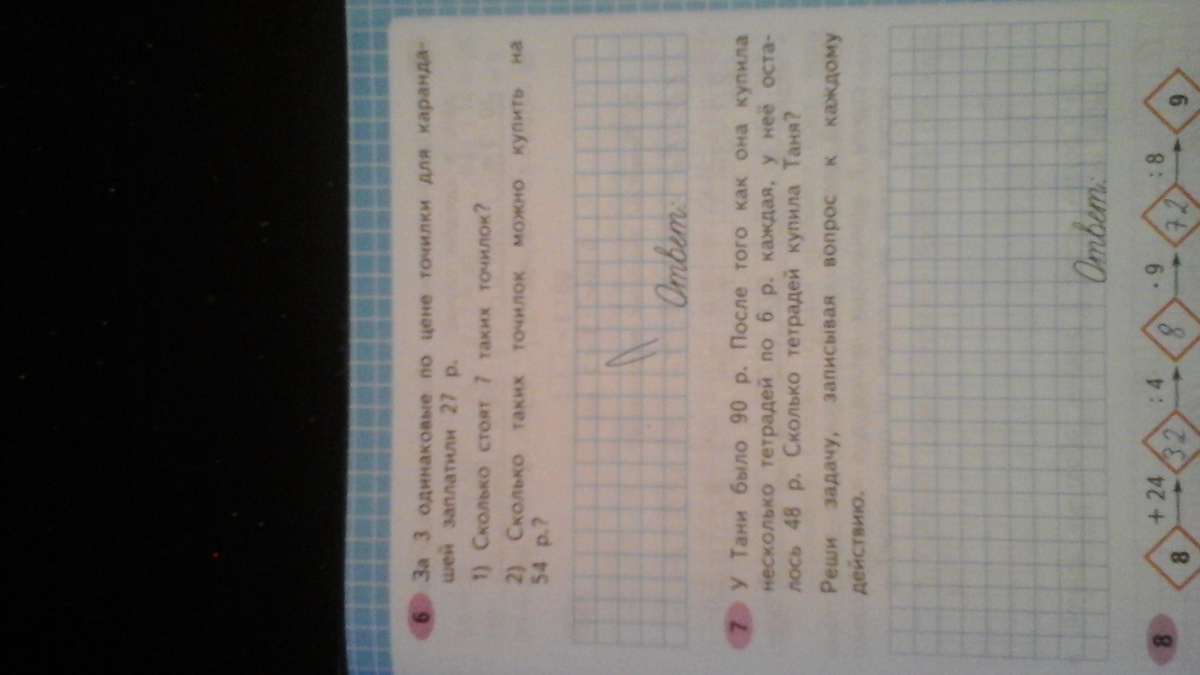 6 За 3 одинаковые по цене точилки для каранда-
шей заплатили 27 р.
1) Сколько стоят 7 таких точилок?
2) Сколько таких точилок можно купить на
54 р.?
Ответ:
7 У Тани было 90 р. После того как она купила
несколько тетрадей по 6 р. каждая, у неё оста-
лось 48 р. Сколько тетрадей купила Таня?
Реши задачу, записывая вопрос к каждому
действию.
Ответ:
8 8 +24 32 :4 8 ·9 72 :8 9